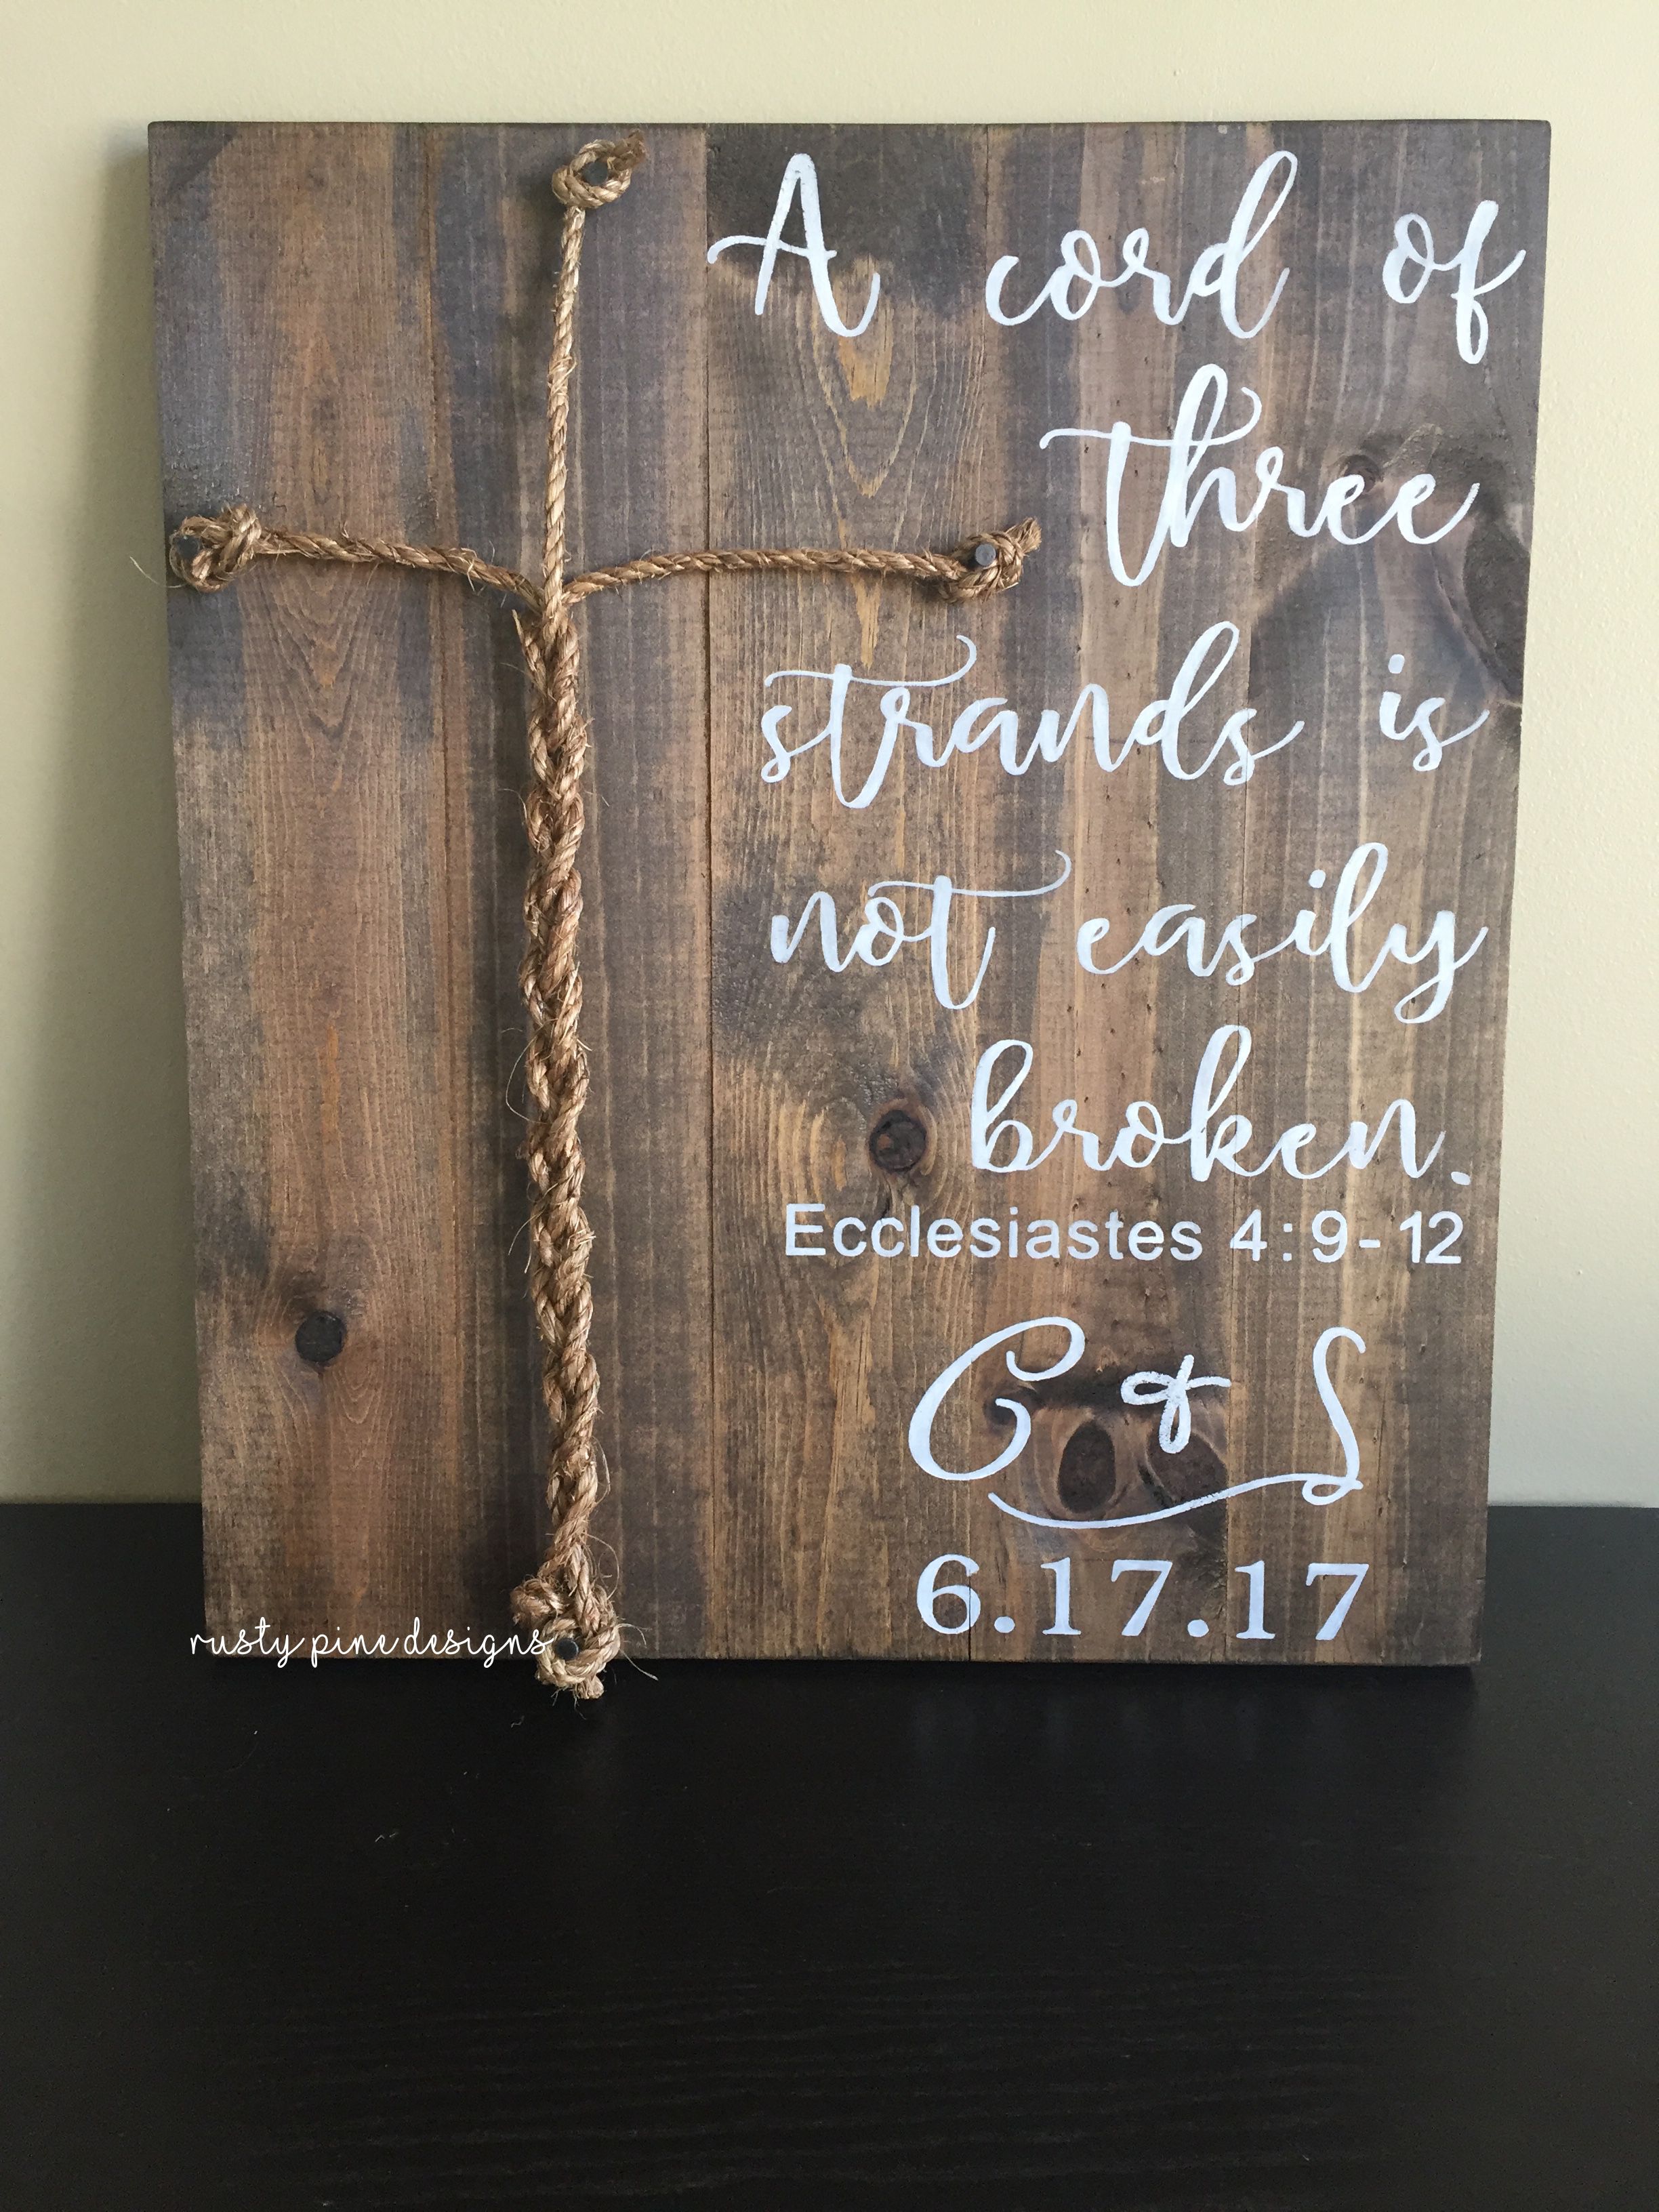 A cord of
three
strands is
not easily
broken.
Ecclesiastes 4:9-12
C & L
6.17.17
rusty pine designs